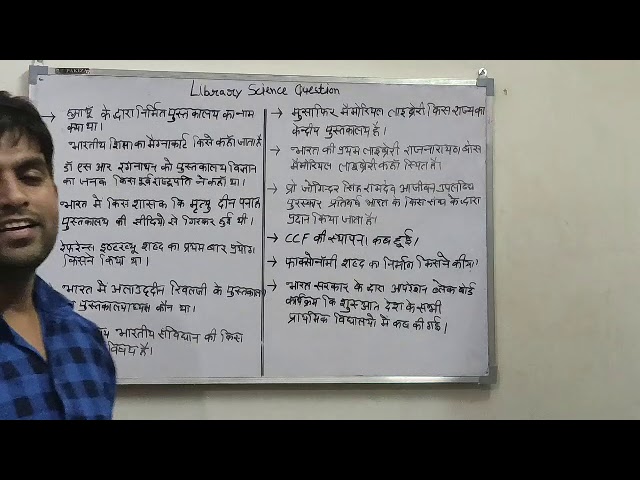 Library Science Question
→ हुमायूँ के द्वारा निर्मित पुस्तकालय का नाम
क्या था।
भारतीय शिक्षा का मैग्नाकार्टा किसे कहाँ जाता है
डॉ एस आर रंगनाथन को पुस्तकालय विज्ञान
का जनक किस पूर्व राष्ट्रपति ने कहाँ था।
भारत मे किस शासक कि मृत्यु दीन पनाह
पुस्तकालय की सीढियो से गिरकर हुई थी।
रेफरेन्स इण्टरव्यू शब्द का प्रथम बार प्रयोग
किसने किया था।
भारत मे अलाउद्दीन खिलजी के पुस्तकालय
पुस्तकालयाध्यक्ष कौन था।
भारतीय संविधान की किस
विषय है।
→ मुसाफिर मैमोरियल लाइब्रेरी किस राज्य का
केन्द्रीय पुस्तकालय है।
→ भारत की प्रथम लाइब्रेरी राजनारायण बोस
मैमोरियल लाइब्रेरी कहाँ स्थित है।
→ प्रो जोगिन्दर सिंह रामदेव आजीवन उपलब्धि
पुरस्कार प्रतिवर्ष भारत के किस संघ के द्वारा
प्रदान किया जाता है।
→ CCF की स्थापना कब हुई।
→ फाक्सोनॉमी शब्द का निर्माण किसने कीया।
→ भारत सरकार के द्वारा आपरेशन ब्लैक बोर्ड
कार्यक्रम कि शुरुआत देश के सभी
प्राथमिक विद्यालयो मे कब की गई।